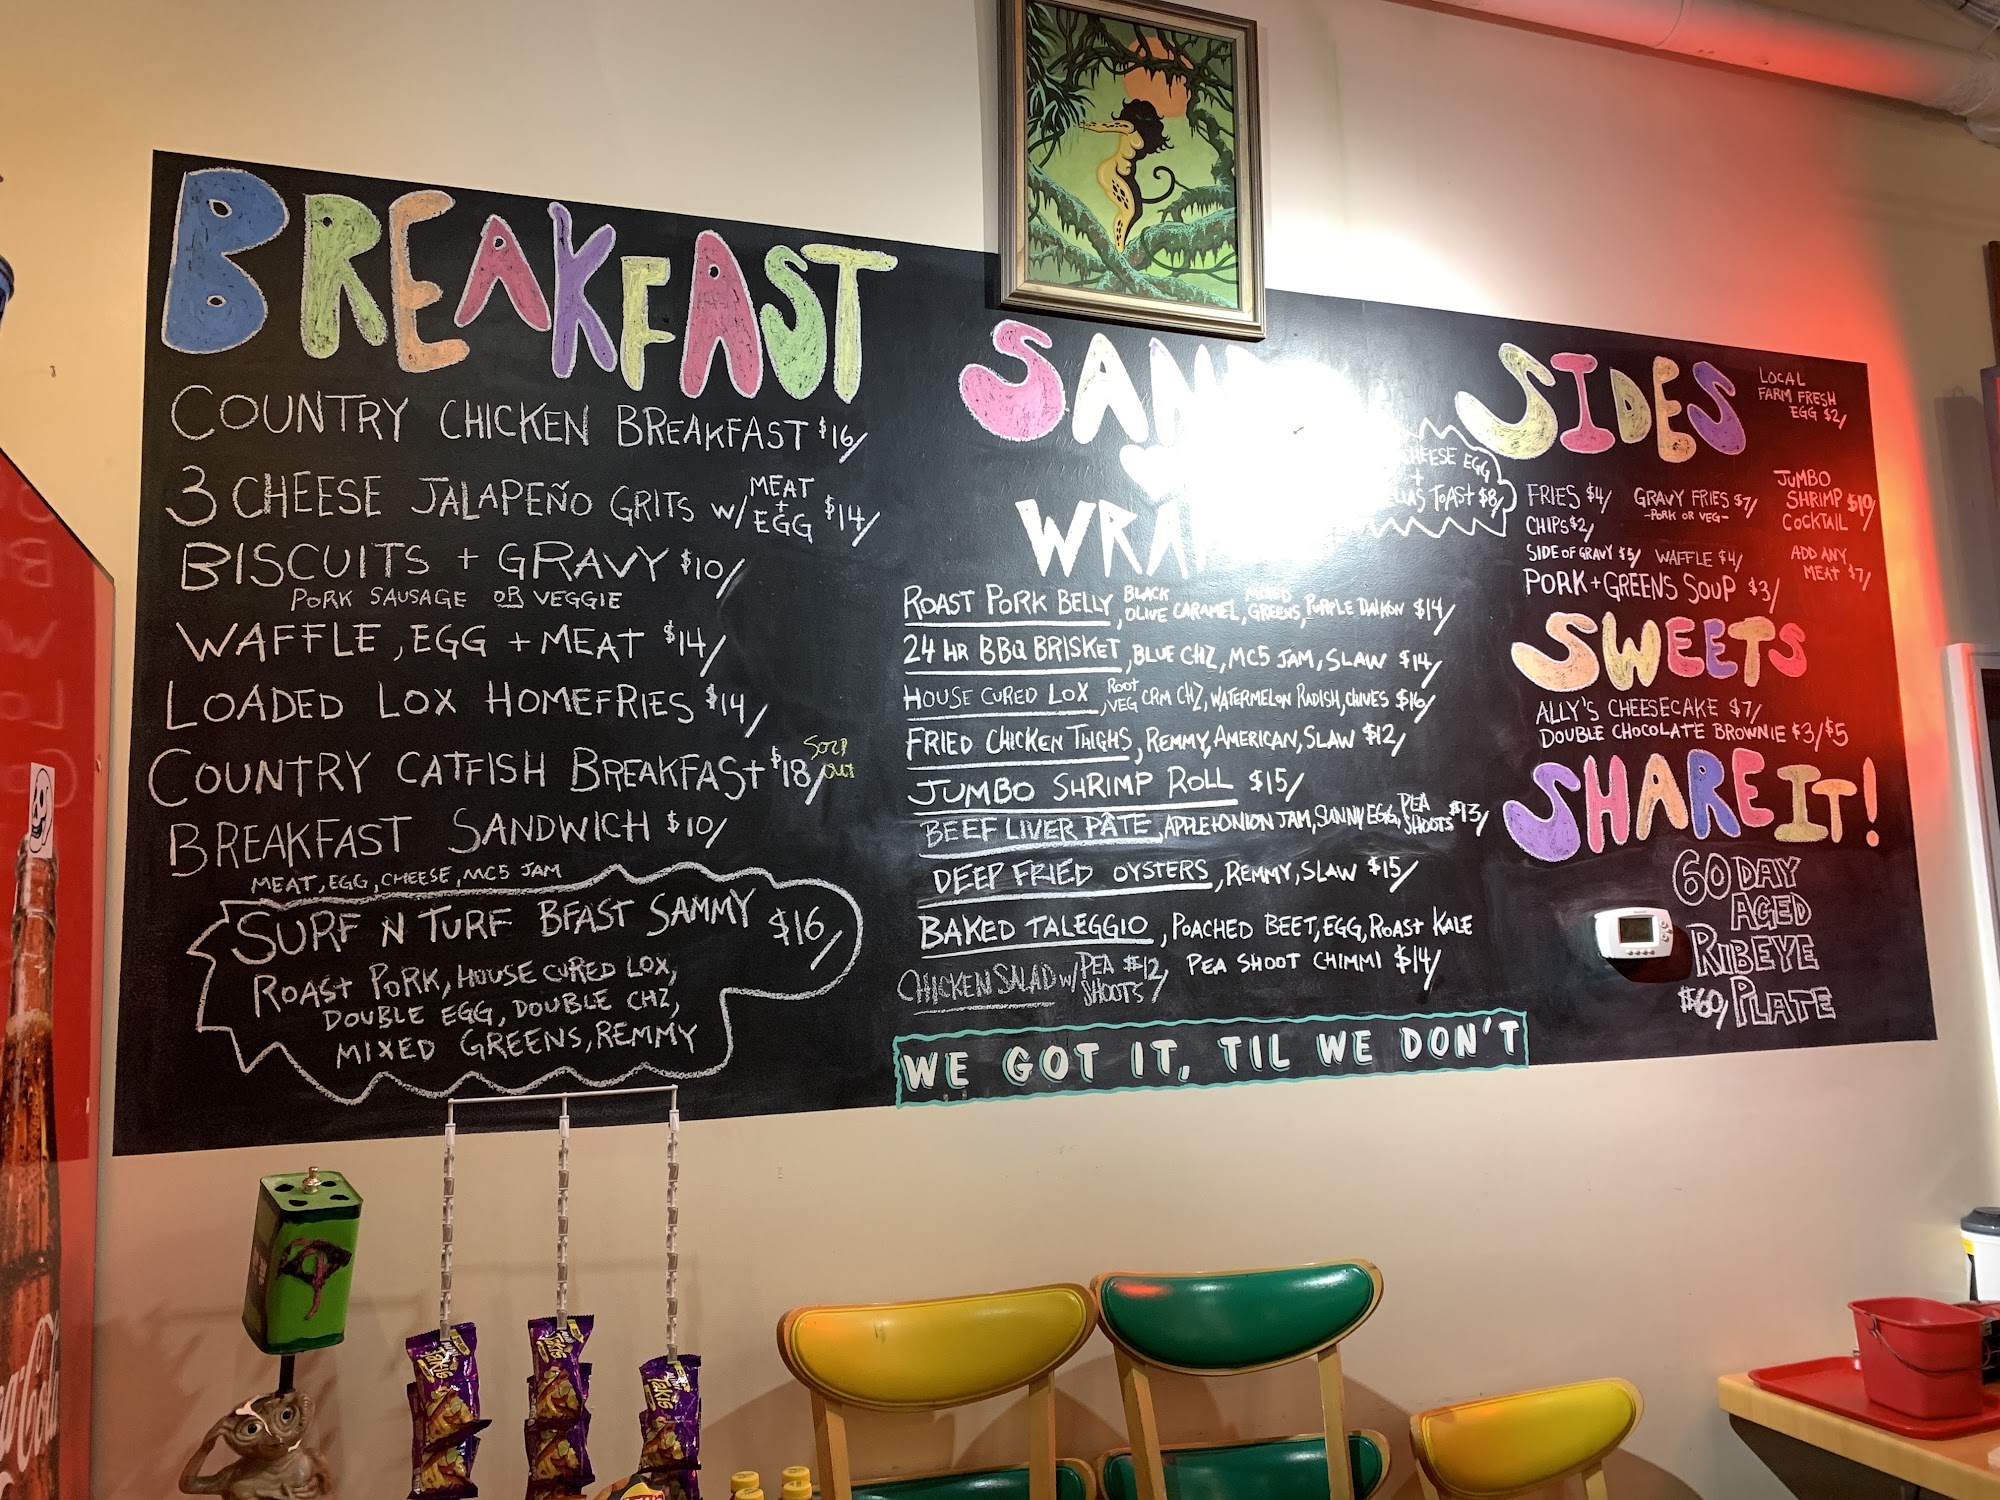 BREAKFAST
COUNTRY CHICKEN BREAKFAST $16/
3 CHEESE JALAPEÑO GRITS W/ MEAT + EGG $14/
BISCUITS + GRAVY $10/
PORK SAUSAGE OR VEGGIE
WAFFLE, EGG + MEAT $14/
LOADED LOX HOMEFRIES $14/
COUNTRY CATFISH BREAKFAST $18/ SOLD OUT
BREAKFAST SANDWICH $10/
MEAT, EGG, CHEESE, MC5 JAM
SURF N TURF BFAST SAMMY $16/
ROAST PORK, HOUSE CURED LOX,
DOUBLE EGG, DOUBLE CHZ,
MIXED GREENS, REMMY
CHEESE EGG
+
TOAST $8/
ROAST PORK BELLY, BLACK OLIVE CARAMEL, MIXED GREENS, PURPLE DAIKON $14/
24 HR BBQ BRISKET, BLUE CHZ, MC5 JAM, SLAW $14/
HOUSE CURED LOX, ROOT VEG CRM CHZ, WATERMELON RADISH, CHIVES $16/
FRIED CHICKEN THIGHS, REMMY, AMERICAN, SLAW $12/
JUMBO SHRIMP ROLL $15/
BEEF LIVER PÂTE, APPLE+ONION JAM, SUNNY EGG, PEA SHOOTS $13/
DEEP FRIED OYSTERS, REMMY, SLAW $15/
BAKED TALEGGIO, POACHED BEET, EGG, ROAST KALE
PEA SHOOT CHIMMI $14/
CHICKEN SALAD W/ PEA SHOOTS $12/
WE GOT IT, TIL WE DON'T
SIDES
LOCAL
FARM FRESH
EGG $2/
FRIES $4/ GRAVY FRIES $7/
-PORK OR VEG-
JUMBO
SHRIMP $10/
COCKTAIL
CHIPS $2/
SIDE OF GRAVY $5/ WAFFLE $4/
ADD ANY
MEAT $7/
PORK + GREENS SOUP $3/
SWEETS
ALLY'S CHEESECAKE $7/
DOUBLE CHOCOLATE BROWNIE $3/$5
SHARE IT!
60 DAY
AGED
RIBEYE
$60/ PLATE
Takis
Takis
Takis